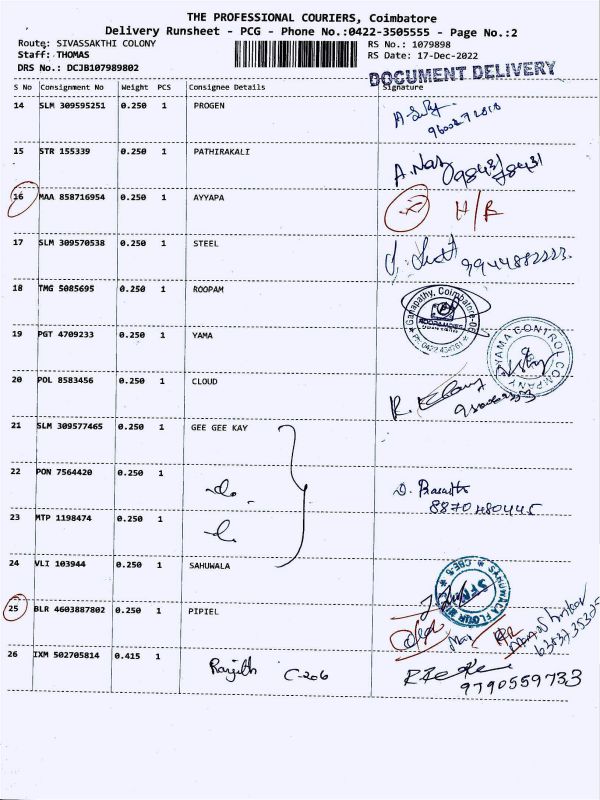 THE PROFESSIONAL COURIERS, Coimbatore
Delivery Runsheet - PCG - Phone No.:0422-3505555 - Page No.:2
Route: SIVASSAKTHI COLONY RS No.: 1079898
Staff: THOMAS RS Date: 17-Dec-2022
DRS No.: DCJB107989802 DOCUMENT DELIVERY
S No Consignment No Weight PCS Consignee Details Signature
14 SLM 309595251 0.250 1 PROGEN
15 STR 155339 0.250 1 PATHIRAKALI
16 MAA 858716954 0.250 1 AYYAPA H/R
17 SLM 309570538 0.250 1 STEEL
18 TMG 5085695 0.250 1 ROOPAM Ganapathy, Coimbatore
19 PGT 4709233 0.250 1 YAMA YAMA CONTROL COMPANY
20 POL 8583456 0.250 1 CLOUD
21 SLM 309577465 0.250 1 GEE GEE KAY
22 PON 7564420 0.250 1 do. D.
8870480445
23 MTP 1198474 0.250 1
24 VLI 103944 0.250 1 SAHUWALA SAHUWALA FLOUR
25 BLR 4603887802 0.250 1 PIPIEL
26 IXM 502705814 0.415 1 Ranjith C-206
9790559733